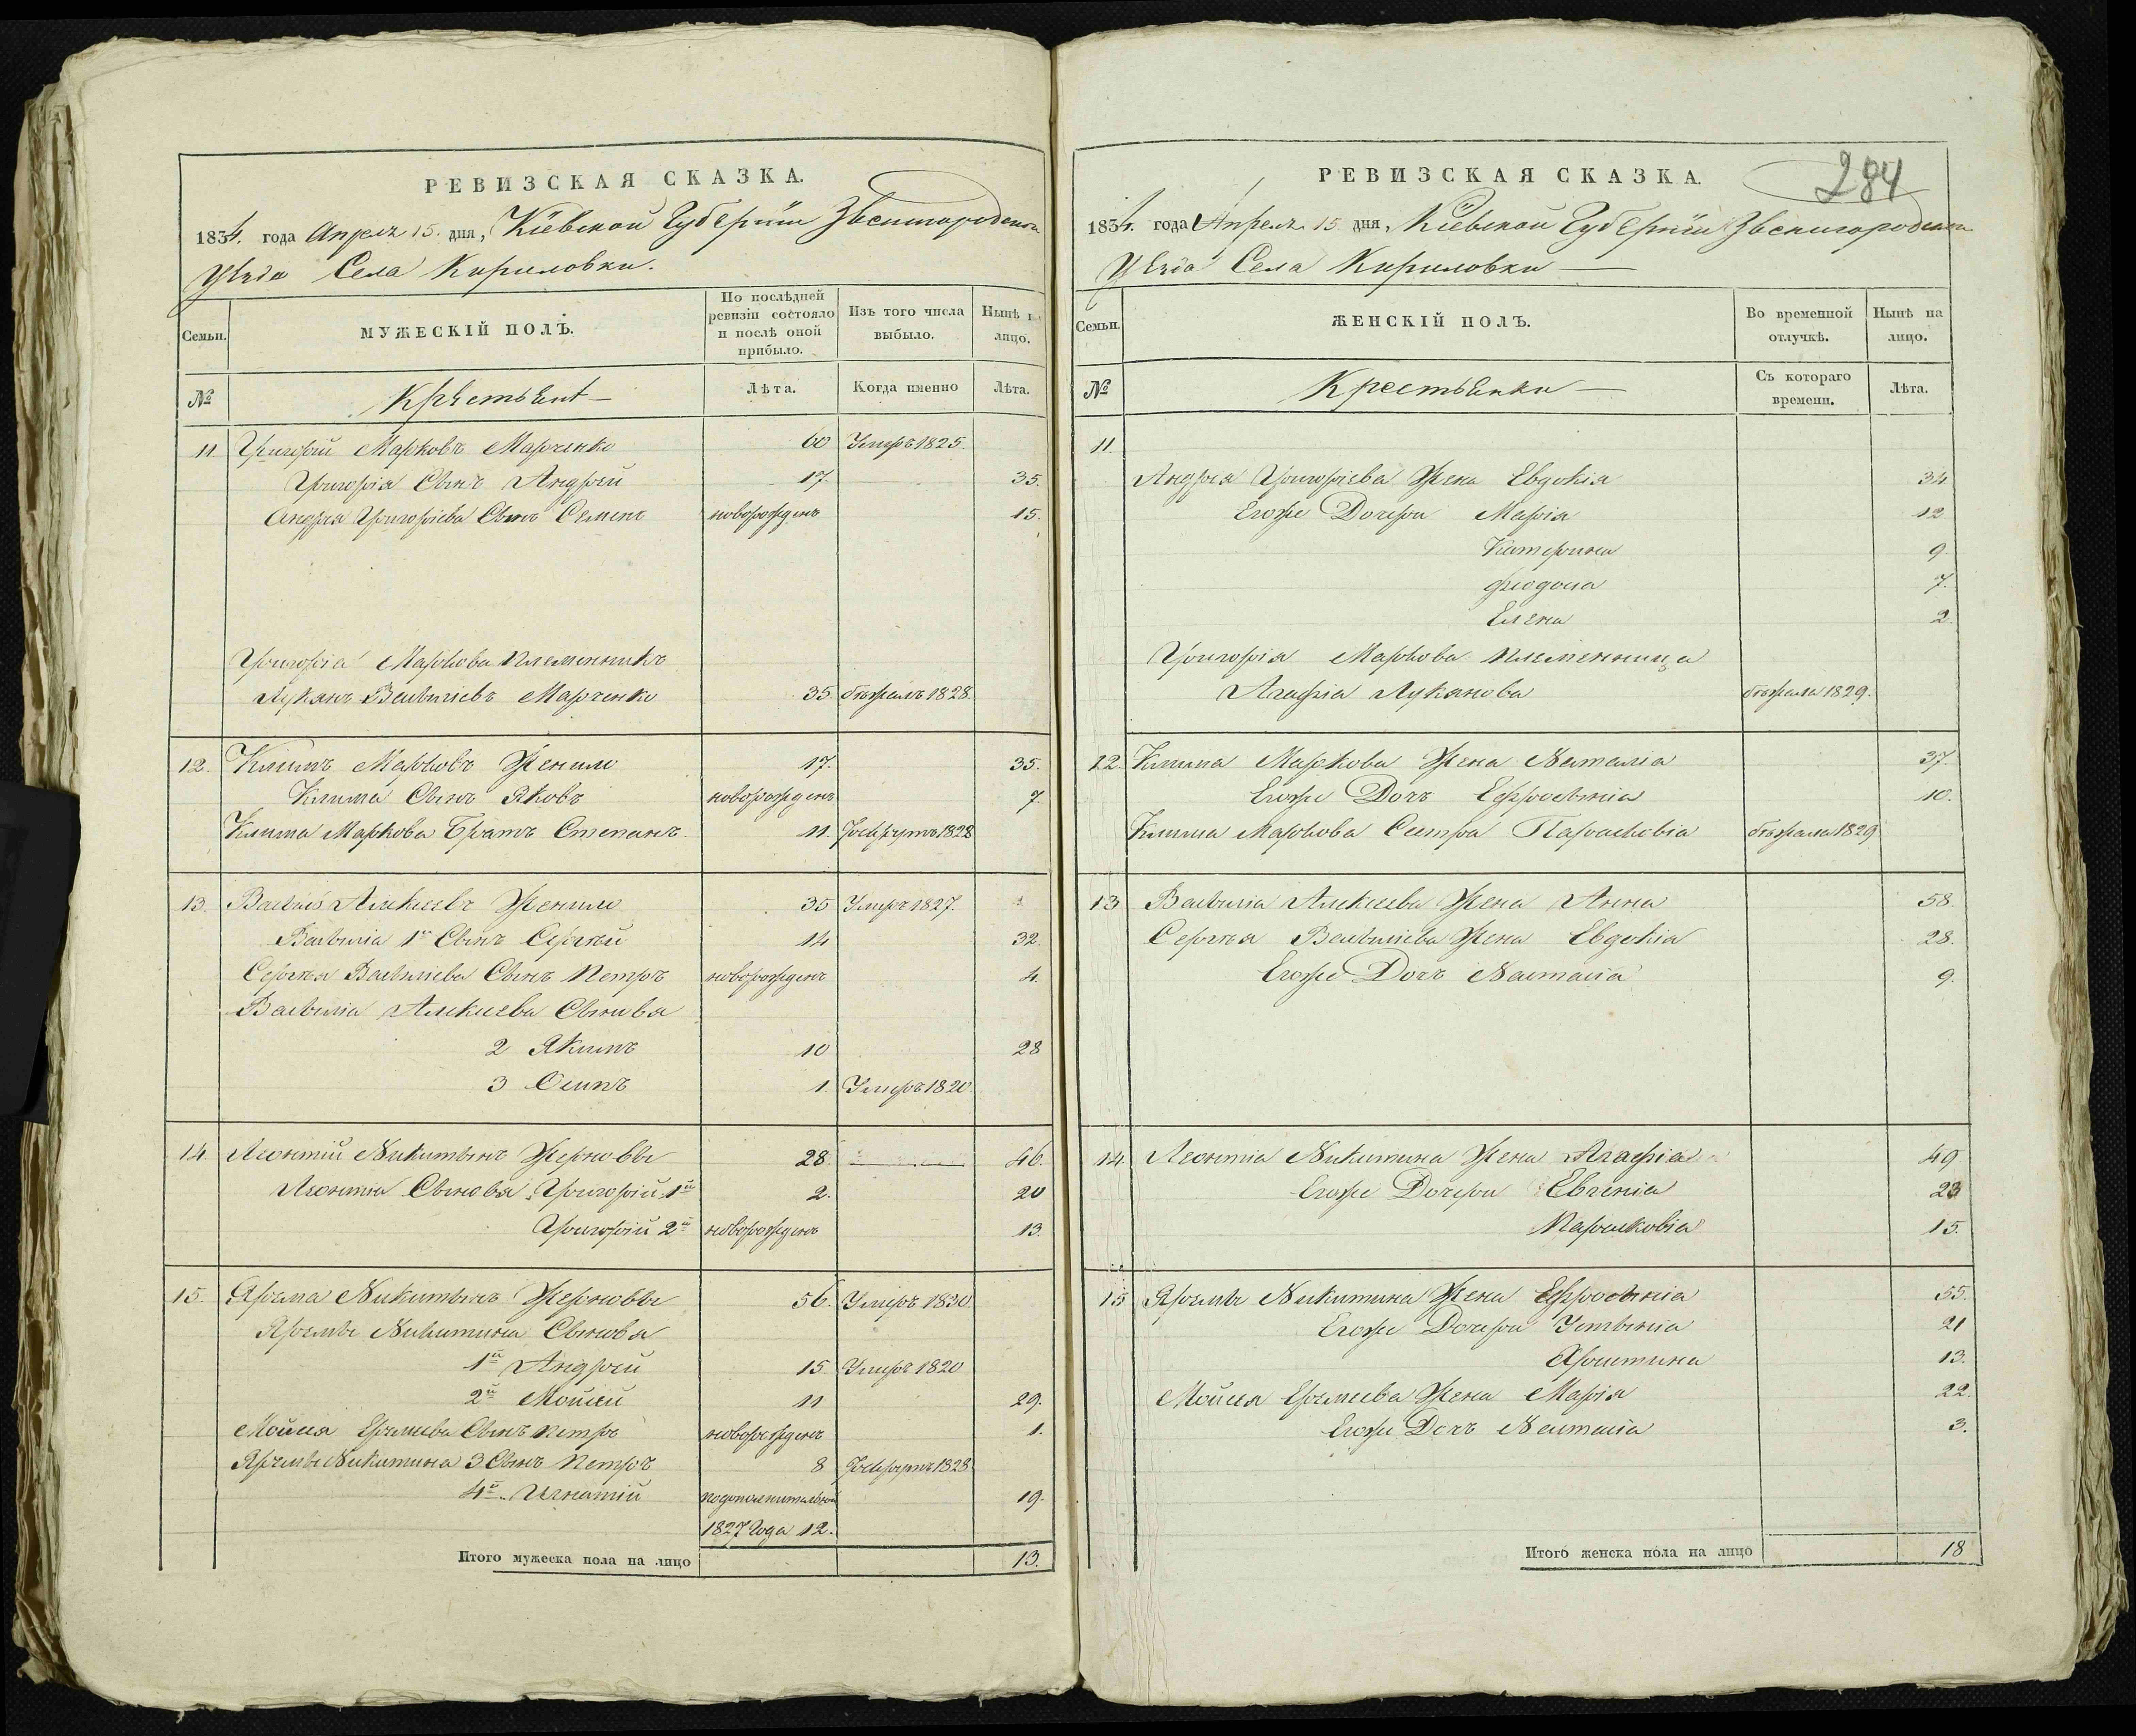 РЕВИЗСКАЯ СКАЗКА.
1834. года Апреля 15. дня, Кіевской Губерніи Звенигородскаго
Уѣзда Села Кириловки.
Семьи.
МУЖЕСКІЙ ПОЛЪ.
По послѣдней ревизіи состояло и послѣ оной прибыло.
Изъ того числа выбыло.
Нынѣ на лицо.
№
Крестьяне
Лѣта.
Когда именно
Лѣта.
11. Григорій Марковъ Марченко 60 Умеръ 1825.
Григорія Сынъ Андрей 17. 35.
Андрея Григоріева Сынъ Семенъ новорожденъ 15.
Григорія Маркова племянникъ
Лукянъ Васильевъ Марченко 35 бѣжалъ 1828.
12. Климъ Марковъ Женило 17. 35.
Клима Сынъ Яковъ новорожденъ 7.
Клима Маркова Братъ Степанъ 11. Рекрутъ 1828
13. Василій Алексеевъ Женило 35 Умеръ 1827.
Василія 1й Сынъ Сергѣй 14 32.
Сергѣя Василіева Сынъ Петръ новорожденъ 4.
Василія Алексеева Сыновья
2 Якимъ 10 28
3 Осипъ 1. Умеръ 1820
14. Леонтій Никитинъ Жерновый 28. 46.
Леонтія Сыновья Григорій 1й 2. 20
Григорій 2й новорожденъ 13.
15. Ярема Никитинъ Жерновый 56. Умеръ 1830
Яремы Никитина Сыновья
1й Андрей 15. Умеръ 1820
2й Мойсей 11 29.
Мойсея Еремиева Сынъ Петръ новорожденъ 1.
Яремы Никитина 3 Сынъ Петръ 8 Рекрутъ 1828
4й Игнатій подополнительной 19.
1827 Года 12.
Итого мужеска пола на лицо 13.
284
РЕВИЗСКАЯ СКАЗКА.
1834. года Апреля 15 дня, Кіевской Губерніи Звенигородскаго
Уѣзда Села Кириловки
Семьи.
ЖЕНСКІЙ ПОЛЪ.
Во временной отлучкѣ.
Нынѣ на лицо.
№
Крестьянки
Съ котораго времени.
Лѣта.
11.
Андрея Григоріева Жена Евдокія 34
Егоже Дочери Марія 12
Катерина 9
Феодосія 7.
Елена 2
Григорія Маркова племенница
Агафія Лукянова бѣжала 1829.
12. Клима Маркова Жена Наталія 37.
Егоже Дочь Ефросинія 10.
Клима Маркова Сестра Парасковія бѣжала 1829
13 Василія Алексеева Жена Анна 58.
Сергѣя Василіева Жена Евдокія 28.
Егоже Дочь Настасія 9.
14. Леонтія Никитина Жена Агафія 49
Егоже Дочери Евгенія 23
Парасковія 15.
15 Яремы Никитина Жена Ефросинія 55.
Егоже Дочери Устинія 21
13.
Мойсея Еремиева Жена Марія 22.
Егоже Дочь Настасія 3.
Итого женска пола на лицо 18